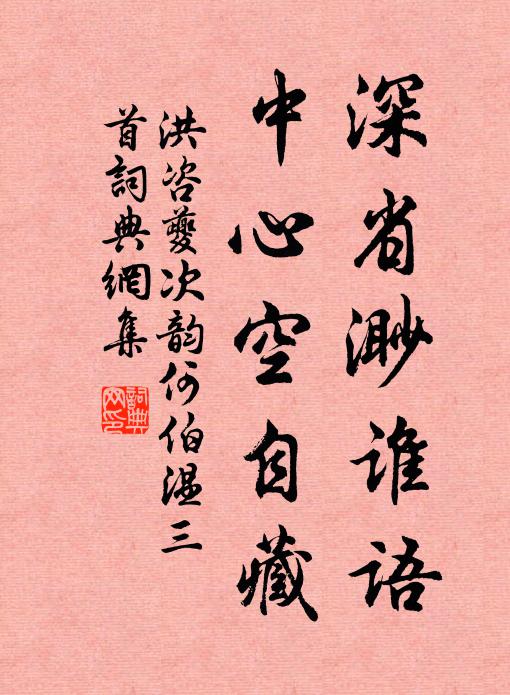 深省渺谁语
中心空自藏
洪咨夔次韵何伯温三
首词典網集
詞典網印